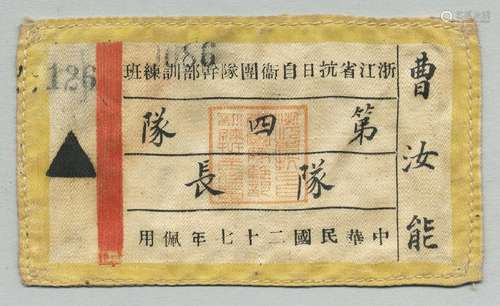 曹汝能
浙江省抗日自衞團隊幹部訓練班
第四隊
隊長
中華民國二十七年佩用
1086
126